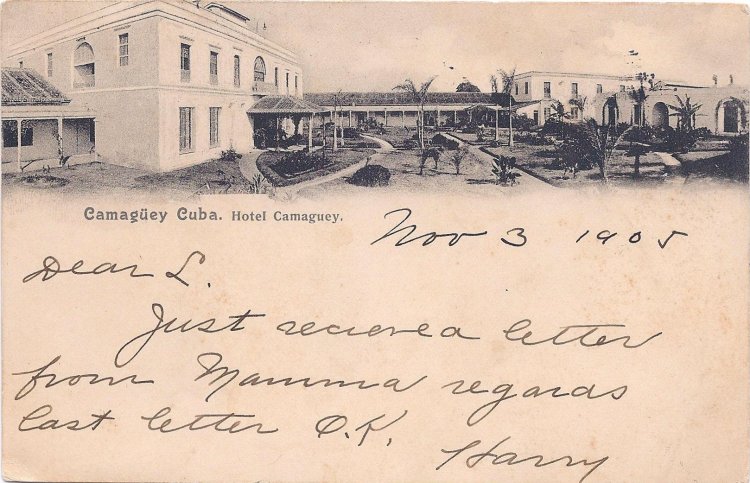 Camagüey Cuba. Hotel Camaguey.
Nov 3 1905
Dear L.
Just recieved a letter
from Mamma regards
last letter O.K.
Harry